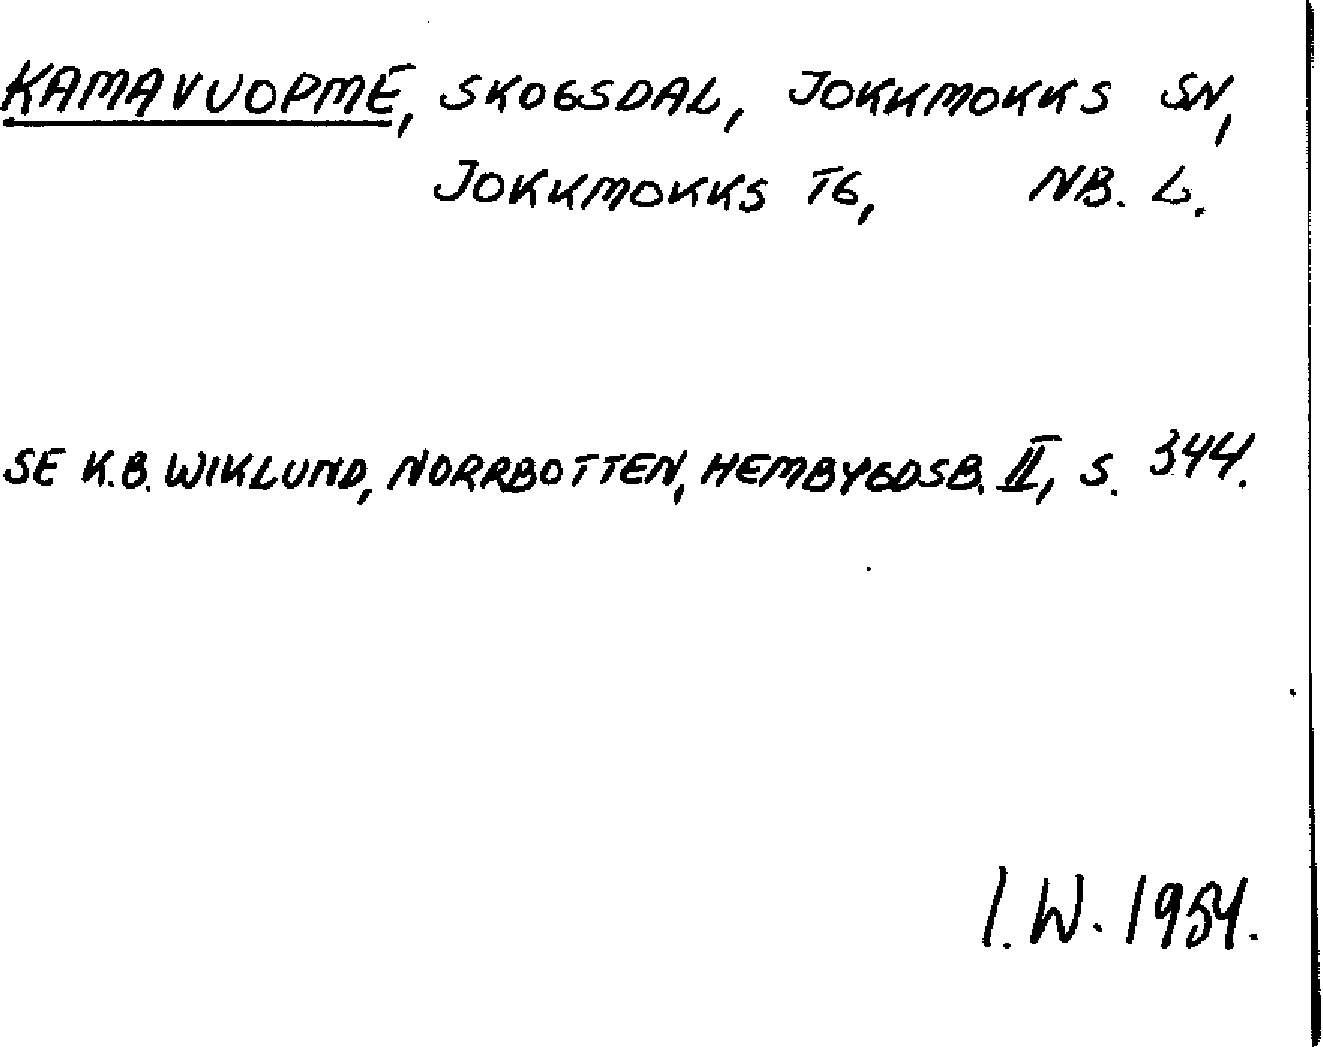 KAMAVUOPME, SKOGSDAL, JOKKMOKKS SN,
JOKKMOKKS TG, NB. L.
SE K.B. WIKLUND, NORRBOTTEN, HEMBYGDSB. II, S. 344.
I. W. 1954.